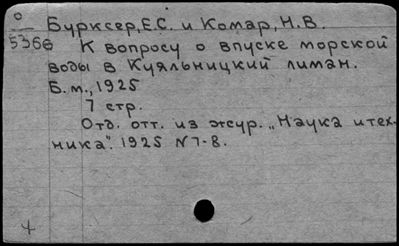 о
Бурксер, Е.С. и Комар, Н.В.
5366
К вопросу о впуске морской
воды в Куяльницкий лиман.
Б.м., 1925
7 стр.
Отд. отт. из жур. „Наука и тех-
ника". 1925 N 7-8.